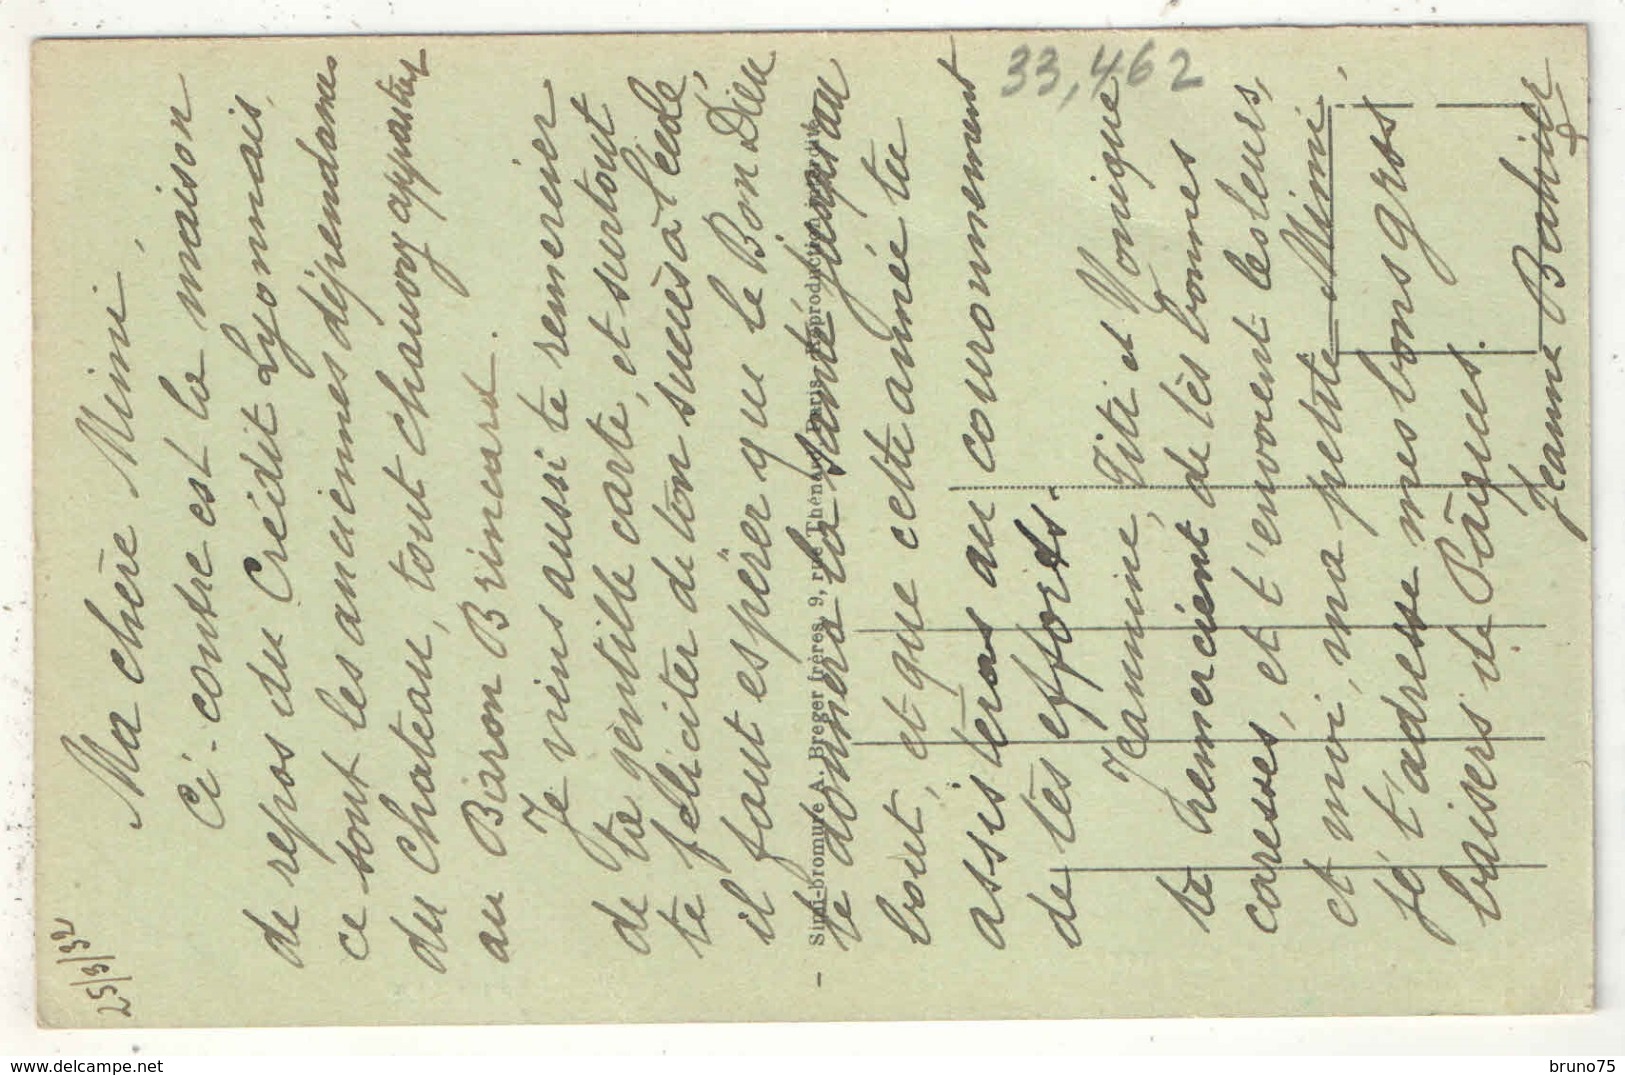 25/3/32
33,462
Ma chère Mimi,
Ci-contre est la maison
de repos du Crédit Lyonnais,
ce sont les anciennes dépendances
du Chateau, tout chauvry appartient
au Baron Brincard.
Je viens aussi te remercier
de ta gentille carte, et surtout
te féliciter de ton succès à l'école,
il faut espérer que le Bon Dieu
te donnera la santé jusqu'au
bout, et que cette année tu
assisteras au couronnement
de tes efforts.
Jeannine, Titi et Monique
te remercient de tes bonnes
caresses, et t'envoient les leurs,
et moi, ma petite Mimi,
je t'adresse mes bons gros
baisers de Pâques.
Jeanne
- Simi-bromure A. Breger frères, 9, rue Thénard, Paris. Reproduction interdite
bruno75